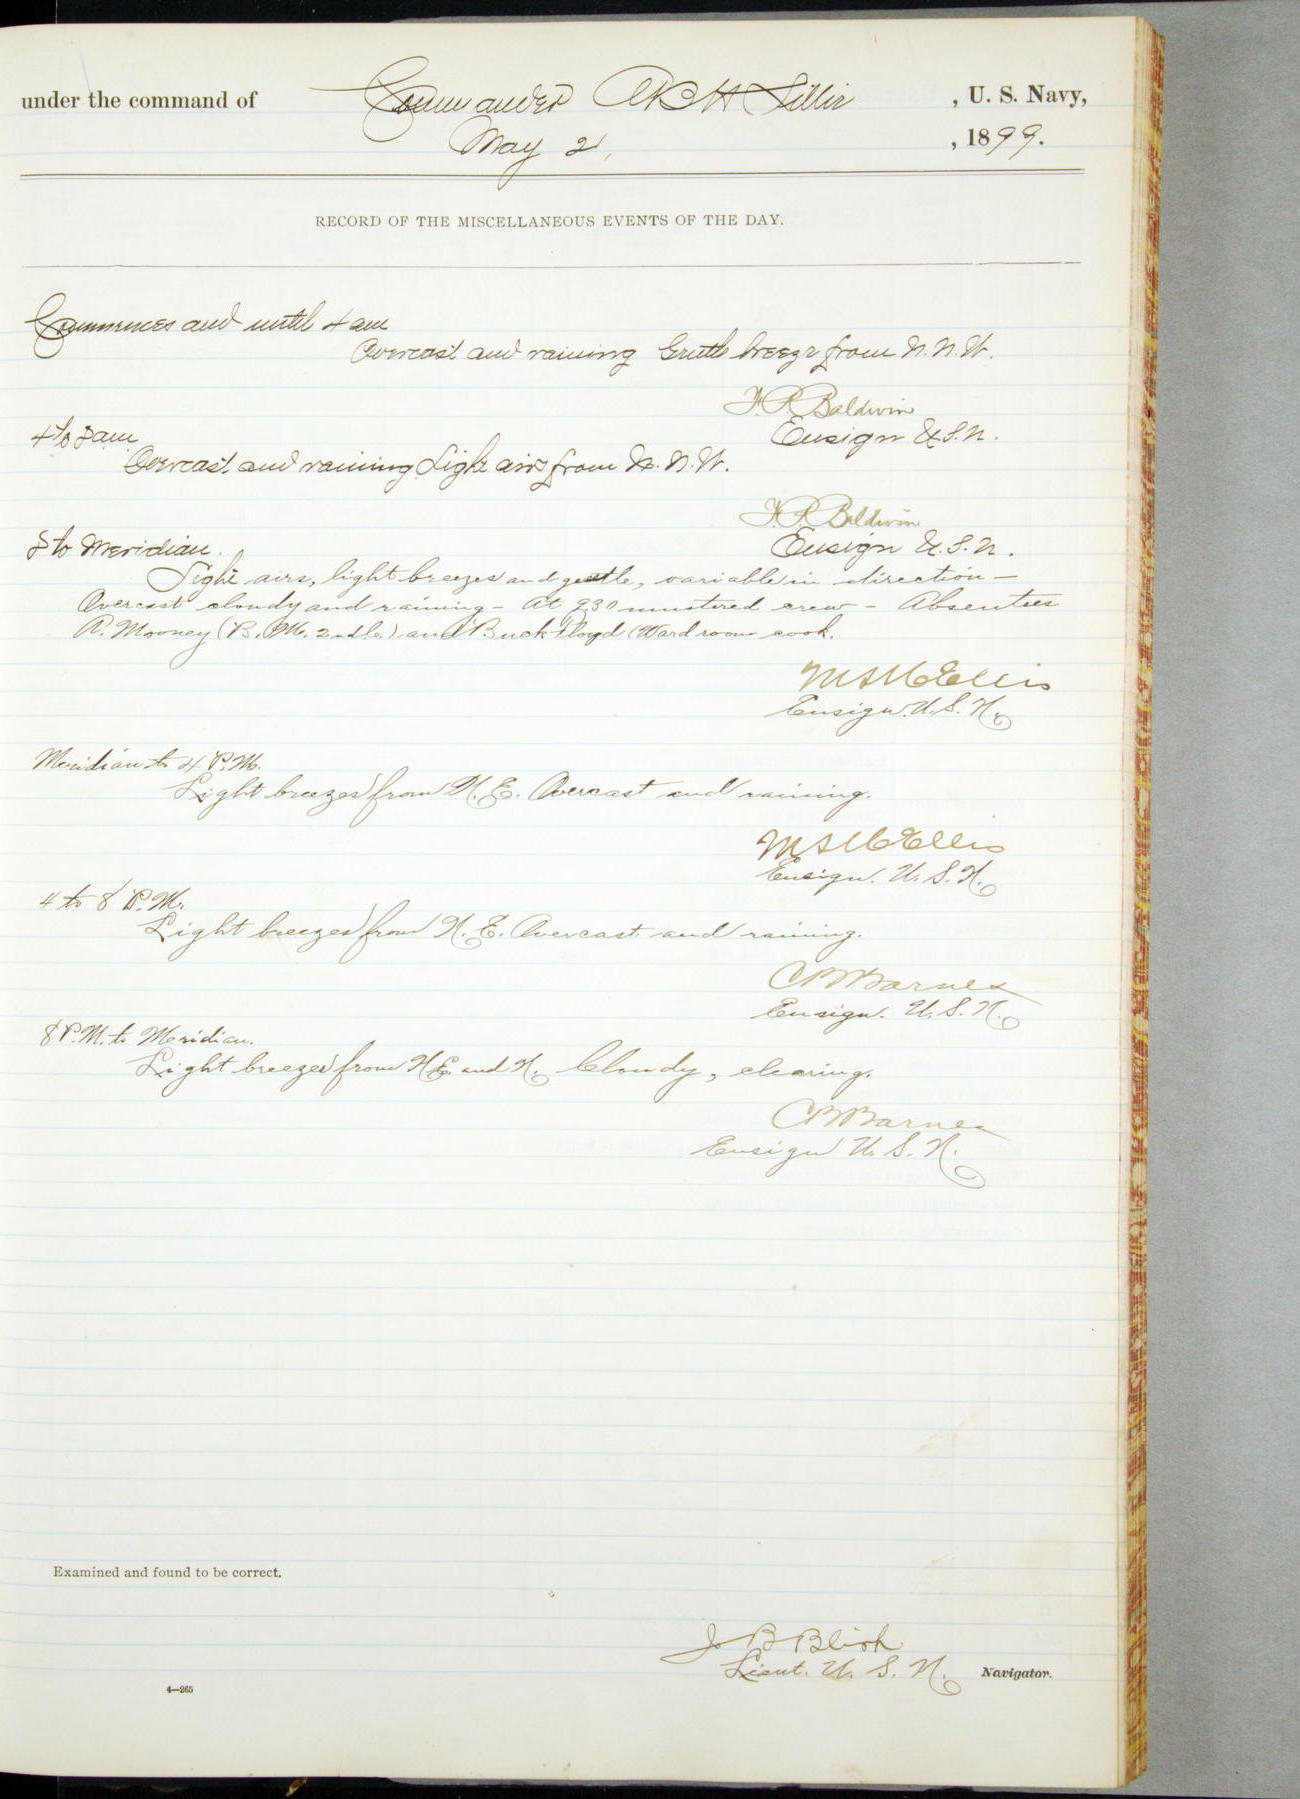 under the command of Commander A B H Lillie , U. S. Navy,
May 2, , 1899.
RECORD OF THE MISCELLANEOUS EVENTS OF THE DAY.
Commences and until 4 am
Overcast and raining Gentle breeze from N. N. W.
F. R. Baldwin
4 to 8 am
Ensign U.S.N.
Overcast and raining Light airs from N. N. W.
F. R. Baldwin
8 to Meridian.
Ensign U.S.N.
Light airs, light breezes and gentle, variable in direction —
Overcast cloudy and raining — At 930 mustered crew — Absentees
R. Mooney (B. M. 2nd c.) and Buck Floyd (Wardroom cook.
M S Ellis
Ensign. U. S. N.
Meridian to 4 P.M.
Light breezes from N. E. Overcast and raining.
M S Ellis
Ensign. U. S. N.
4 to 8 P. M.
Light breezes from N. E. Overcast and raining.
C B Barnes
Ensign. U. S. N.
8 P.M. to Meridian.
Light breezes from N.E. and N. Cloudy, clearing.
C B Barnes
Ensign U. S. N.
Examined and found to be correct.
J B Blish
Lieut. U. S. N. Navigator.
4—265